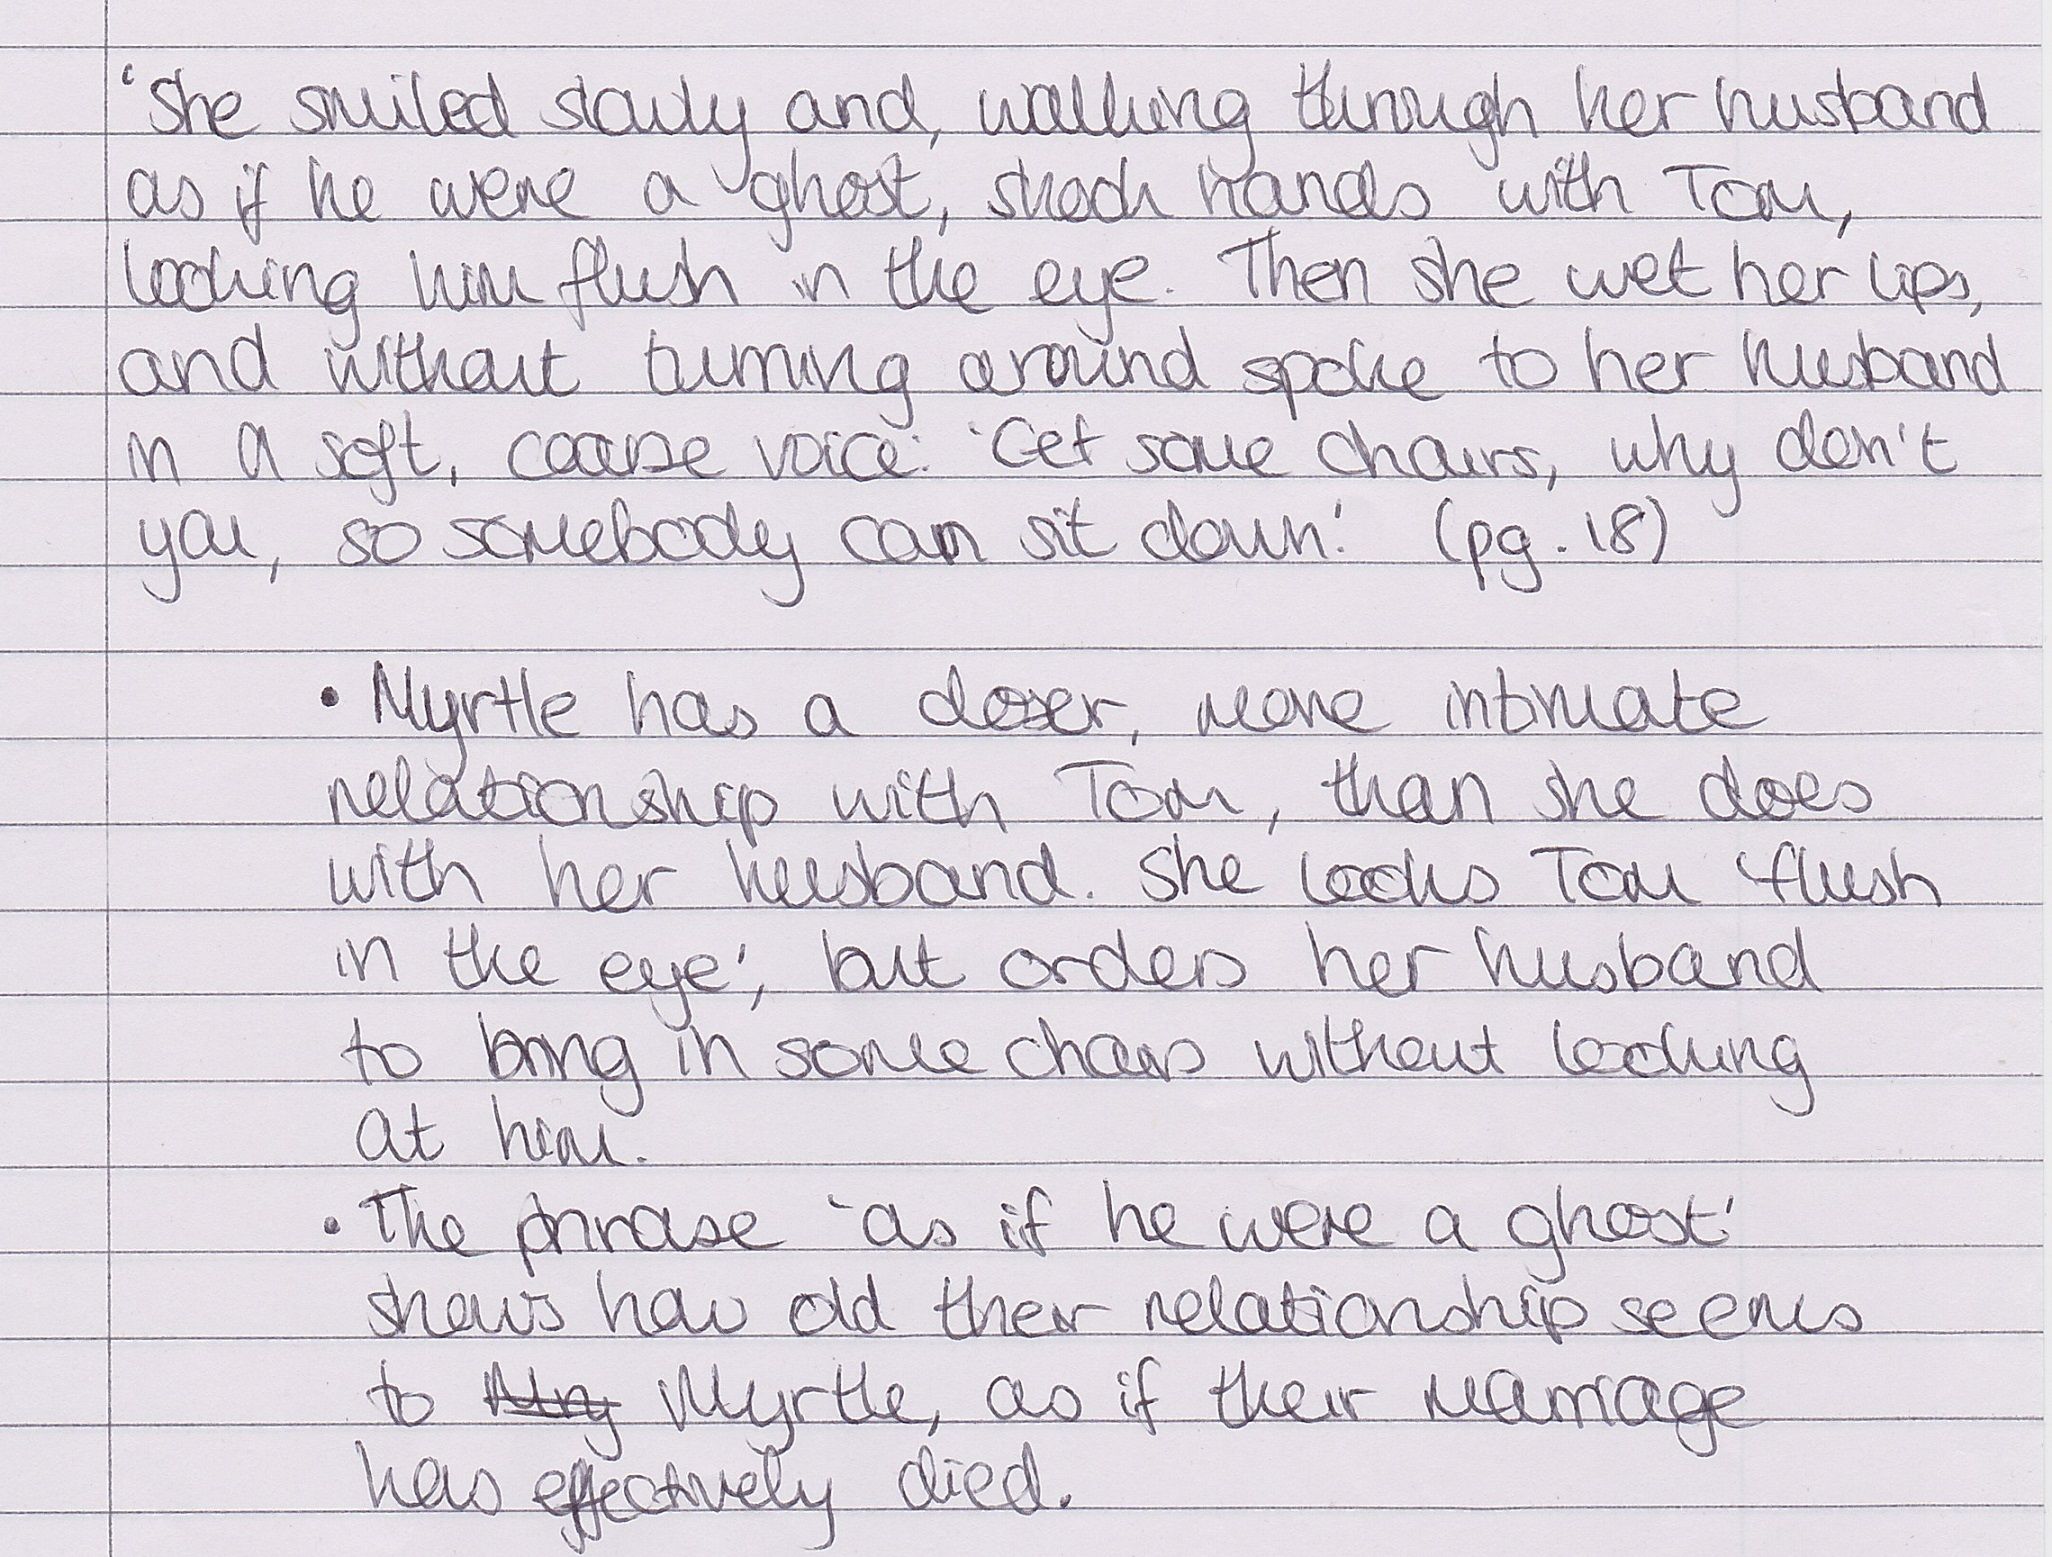 'She smiled slowly and, walking through her husband
as if he were a ghost, shook hands with Tom,
looking him flush in the eye. Then she wet her lips,
and without turning around spoke to her husband
in a soft, coarse voice: 'Get some chairs, why don't
you, so somebody can sit down.' (pg. 18)
• Myrtle has a closer, more intimate
relationship with Tom, than she does
with her husband. She looks Tom 'flush
in the eye', but orders her husband
to bring in some chairs without looking
at him.
• The phrase 'as if he were a ghost'
shows how old their relationship seems
to Myrtle, as if their marriage
has effectively died.